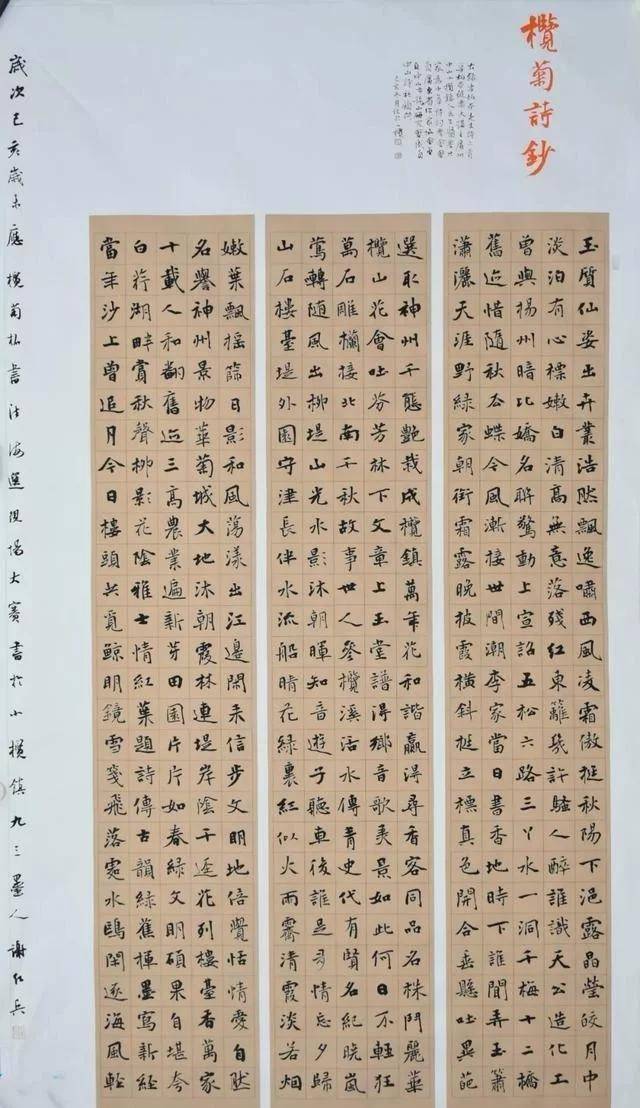 欖菊詩鈔
玉質仙姿出卉叢浩然飄逸嘯西風凌霜傲挺秋陽下浥露晶瑩皎月中
淡泊有心標嫩白清高無意落殘紅東籬幾許騷人醉誰識天公造化工
曾與楊州暗比嬌名聯驚動上宣詔五松六路三丫水一洞千梅十二橋
舊迹惜隨秋蝶今風漸接世間潮李家當日書香地時下誰聞弄玉簫
瀟灑天涯野綠家朝銜霜露晚披霞橫斜挺立標真色開合垂懸吐異葩
選取神州千態艷栽成欖鎮萬年花和諧贏得尋香客同品名株鬥麗華
欖山花會吐芬芳林下文章上玉堂譜得鄉音歌美景如此何日不輕狂
萬石雕欄接北南千秋故事世人參欖溪活水傳青史代有賢名紀曉嵐
鶯轉隨風出柳堤山光水影沐朝暉知音遊子聽車後誰是多情忘夕歸
山石樓臺堤外園守津長伴水流船晴花綠裏紅似火雨霽清霞淡若烟
嫩葉飄搖篩日影和風蕩漾出江邊閑來信步文明地倍覺恬情愛自然
名譽神州景物華菊城大地沐朝霞林連堤岸陰千逕花列樓臺香萬家
十載人和翻舊迹三高農業遍新芽田園片片如春綠文明碩果自堪夸
白荇湖畔賞秋聲柳影花陰雅士情紅葉題詩傳古韻綠蕉揮墨寫新經
當年沙上曾追月今日樓頭共覓鯨明鏡雪箋飛落水鷗閑逐海風輕
歲次己亥歲末應欖菊杯書法海選現場大賽書於小欖鎮九三墨人謝紅兵